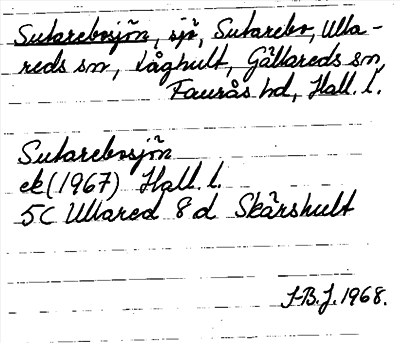 Sutarebosjön, sjö, Sutarebo, Ulla-
reds sn, Låghult, Gällareds sn,
Faurås hd, Hall. l.
Sutarebosjön
ek (1967) Hall. l.
5C Ullared 8 d Skärshult
J-B.J. 1968.